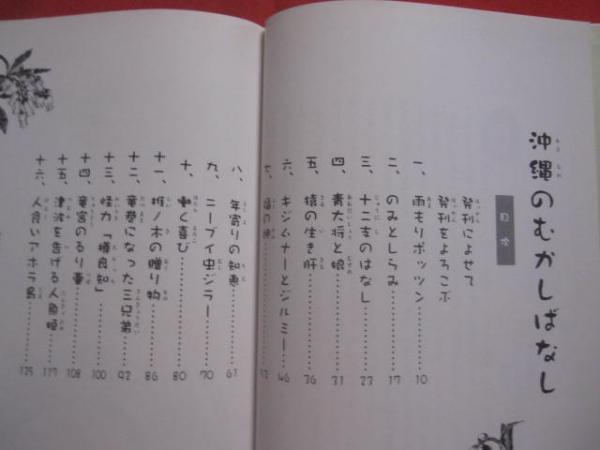 沖縄のむかしばなし
目次
発刊によせて
発刊をよろこぶ
一、雨もりポッツン………10
二、のみとしらみ………17
三、十二支のはなし………23
四、青大将と娘………31
五、猿の生き肝………36
六、キジムナーとジルミー………46
七、
八、年寄りの知恵………61
九、ニーブイ虫ジラー………70
十、働く喜び………80
十一、栃ノ木の贈り物………86
十二、竜巻になった三兄弟………92
十三、怪力「樽良知」………100
十四、竜宮のるり壷………108
十五、津波を告げる人魚姫………117
十六、人食いアホラ鳥………125